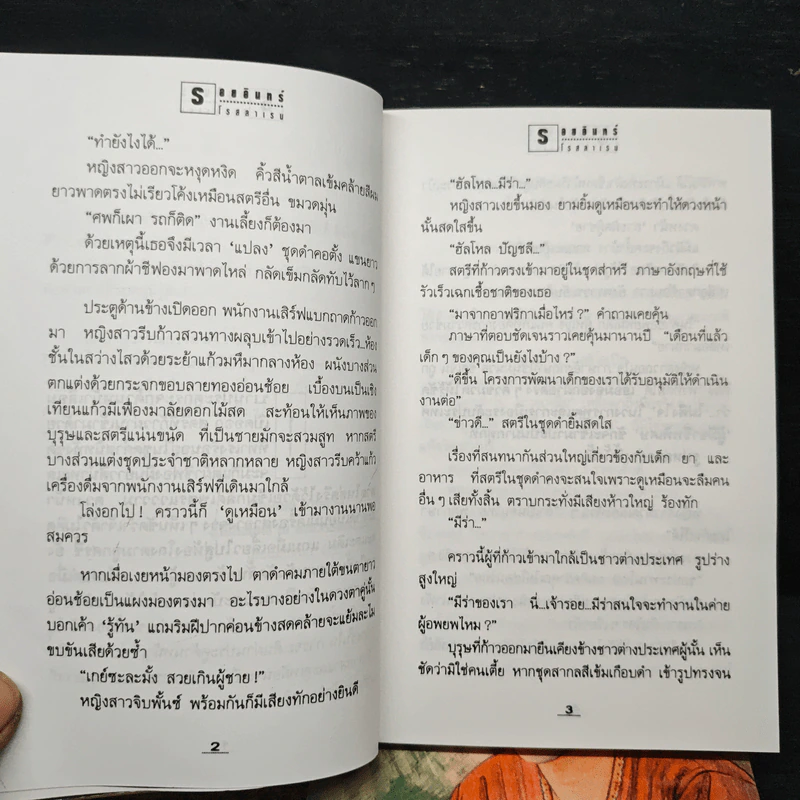 รอยอินทร์
โรสลาเรน
“ทำยังไงได้...”
หญิงสาวออกจะหงุดหงิด คิ้วสีน้ำตาลเข้มคล้ายสีผม
ยาวพาดตรงไม่เรียวโค้งเหมือนสตรีอื่น ขมวดมุ่น
“ศพก็เผา รถก็ติด” งานเลี้ยงก็ต้องมา
ด้วยเหตุนี้เธอจึงมีเวลา ‘แปลง’ ชุดดำคอตั้ง แขนยาว
ด้วยการลากผ้าชีฟองมาพาดไหล่ กลัดเข็มกลัดทับไว้ลากๆ
ประตูด้านข้างเปิดออก พนักงานเสิร์ฟแบกถาดก้าวออก
มา หญิงสาวรีบก้าวสวนทางผลุบเข้าไปอย่างรวดเร็ว..ห้อง
ชั้นในสว่างไสวด้วยระย้าแก้วมหึมากลางห้อง ผนังบางส่วน
ตกแต่งด้วยกระจกขอบลายทองอ่อนช้อย เบื้องบนเป็นเชิง
เทียนแก้วมีเฟื่องมาลัยดอกไม้สด สะท้อนให้เห็นภาพของ
บุรุษและสตรีแน่นขนัด ที่เป็นชายมักจะสวมสูท หากสตรี
บางส่วนแต่งชุดประจำชาติหลากหลาย หญิงสาวรีบคว้าแก้ว
เครื่องดื่มจากพนักงานเสิร์ฟที่เดินมาใกล้
โล่งอกไป! คราวนี้ก็ ‘ดูเหมือน’ เข้ามางานนานพอ
สมควร
หากเมื่อเงยหน้ามองตรงไป ตาดำคมภายใต้ขนตายาว
อ่อนช้อยเป็นแผงมองตรงมา อะไรบางอย่างในดวงตาคู่นั้น
บอกเค้า ‘รู้ทัน’ แถมริมฝีปากค่อนข้างสดคล้ายจะแย้มละไม
ขบขันเสียด้วยซ้ำ
“เกย์ซะละมั้ง สวยเกินผู้ชาย!”
หญิงสาวจิบพั้นซ์ พร้อมกันก็มีเสียงทักอย่างยินดี
2
รอยอินทร์
โรสลาเรน
“ฮัลโหล...มีร่า...”
หญิงสาวเงยขึ้นมอง ยามยิ้มดูเหมือนจะทำให้ดวงหน้า
นั้นสดใสขึ้น
“ฮัลโหล ปัญชลี...”
สตรีที่ก้าวตรงเข้ามาอยู่ในชุดส่าหรี ภาษาอังกฤษที่ใช้
รัวเร็วเฉกเชื้อชาติของเธอ
“มาจากอาฟริกาเมื่อไหร่?” คำถามเคยคุ้น
ภาษาที่ตอบชัดเจนราวเคยคุ้นมานานปี “เดือนที่แล้ว
เด็กๆ ของคุณเป็นยังไงบ้าง?”
“ดีขึ้น โครงการพัฒนาเด็กของเราได้รับอนุมัติให้ดำเนิน
งานต่อ”
“ข่าวดี...” สตรีในชุดดำยิ้มสดใส
เรื่องที่สนทนากันส่วนใหญ่เกี่ยวข้องกับเด็ก ยา และ
อาหาร ที่สตรีในชุดดำคงจะสนใจเพราะดูเหมือนจะลืมคน
อื่นๆ เสียทั้งสิ้น ตราบกระทั่งมีเสียงห้าวใหญ่ ร้องทัก
“มีร่า...”
คราวนี้ผู้ที่ก้าวเข้ามาใกล้เป็นชาวต่างประเทศ รูปร่าง
สูงใหญ่
“มีร่าของเรา นี่...เจ้ารอย...มีร่าสนใจจะทำงานในค่าย
ผู้อพยพไหม?”
บุรุษที่ก้าวออกมายืนเคียงข้างชาวต่างประเทศผู้นั้น เห็น
ชัดว่ามิใช่คนเตี้ย หากชุดสากลสีเข้มเกือบดำ เข้ารูปทรงจน
3